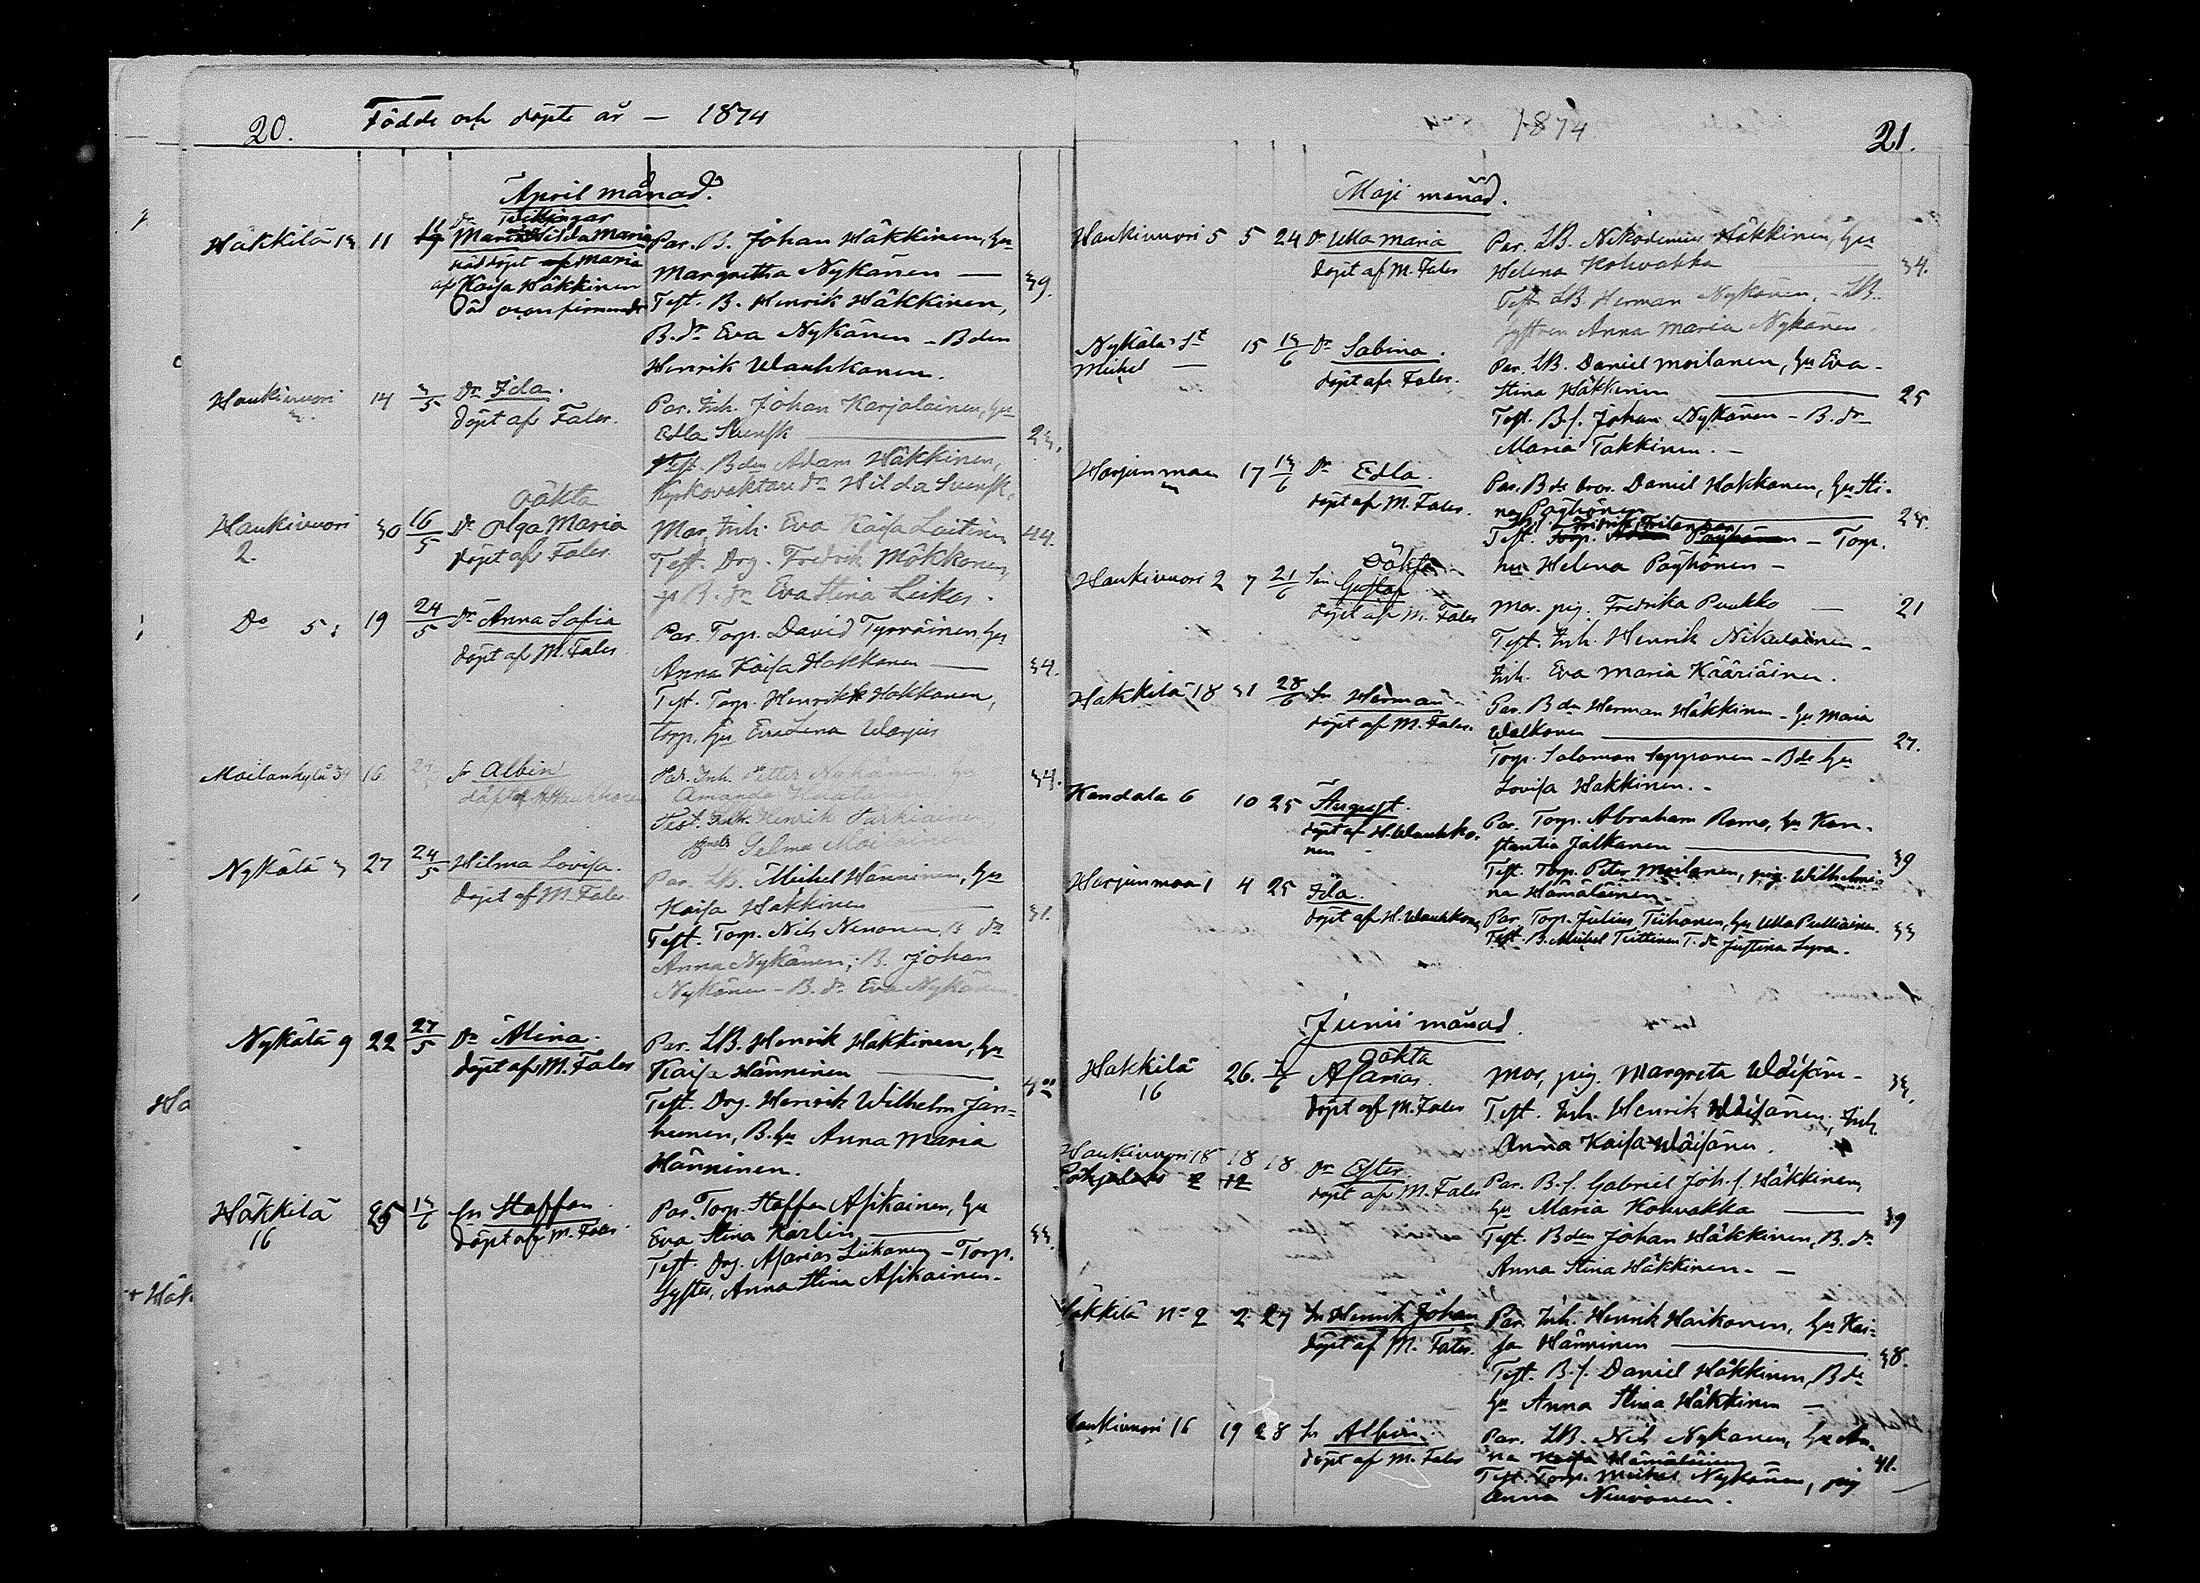 20.
Födde och döpte år — 1874
April månad.
Häkkilä 13 11 11 Dr Tvillingar
Maria Hilda Maria
nöddöpt af Maria
af Kaisa Häkkinen
Par. B. Johan Häkkinen, hu
Margretha Nykänen — 39.
Test. B. Henrik Häkkinen,
B. dr Eva Nykänen - Bden
Henrik Wauhkonen.
Haukivuori 3. 14 3/5 Dr Ida.
döpt af Fales.
Par. Inh. Johan Karjalainen, hu
Edla Svensk — 23.
Test. Bden Adam Häkkinen,
Kyrkovaktare dr Hilda Svensk.
Oäkta
Haukivuori 30 16/5 Dr Olga Maria
2. döpt af Fales.
Mor, Inh. Eva Kaisa Laitinen 44.
Test. Drg. Fredrik Mökkönen,
B. dr Eva Stina Leikas.
Do 5 19 24/5 Dr Anna Sofia
döpt af M. Fales
Par. Torp. David Tyrväinen, hu
Anna Kaisa Hokkanen — 34.
Test. Torp. Henrik Hokkanen,
torp. hu Eva Lena Warjus
Moilankylä 34 16. Sn Albin
döpt af H. Wauhkonen
Par. Inh. Petter Nykänen, hu 34.
Amanda
Test. Inh. Henrik Turkiainen,
Selma
Nykälä 3 27 24/5 Hilma Lovisa.
döpt af M. Fales
Par. LB. Mickel Hänninen, hu
Kaisa Häkkinen — 31.
Test. Torp. Nils Nenonen, B. dr
Anna Nykänen; B. Johan
Nykänen - B. dr Eva Nykänen.
Nykälä 9 22 27/5 Dr Alina.
döpt af M. Fales
Par. LB. Henrik Häkkinen, hu
Kaisa Hänninen — 40
Test. Drg. Henrik Wilhelm Jän=
hunen, B. hu Anna Maria
Hänninen.
Häkkilä 25 13/6 Sn Staffan.
16 döpt af M. Fales
Par. Torp. Staffan Asikainen, hu
Eva Stina Karlin — 33.
Test. Drg. Asarias Liikanen - Torp.
Syster, Anna Stina Asikainen.
1874
21.
Maji månad.
Haukivuori 5 5 24 Dr Ulla Maria
döpt af M. Fales
Par. LB. Nikodemus Häkkinen, hu
Helena Kohvakka — 34.
Test. LB. Herman Nykänen, - LB.
Systren Anna Maria Nykänen.
Nykälä St 15 13/6 Dr Sabina.
Mickel — döpt af Fales.
Par. LB. Daniel Moilanen, hu Eva
Stina Häkkinen — 25
Test. B.s. Johan Nykänen - B. dr
Maria Takkinen. -
Harjunmaa 17 13/6 Dr Edla.
döpt af M. Fales.
Par. Bde bror. Daniel Hokkanen, hu Sti-
na Päyhönen — 23.
Test. - Torp.
hu Helena Päyhönen -
Oäkta
Haukivuori 2 7 21/6 Sn Gustaf
döpt af M. Fales
Mor. pig. Fredrika Puukko — 21
Test. Inh. Henrik Nikulainen -
Inh. Eva Maria Kääriäinen.
Häkkilä 18 31 28/6 Sn Herman
döpt af M. Fales.
Par. Bden Herman Häkkinen - hu Maria
Walkonen — 27.
Torp. Salomon Seppänen - Bde hu
Lovisa Häkkinen. -
Kandala 6 10 25 August.
döpt af H. Wauhko-
nen
Par. Torp. Abraham Romo, hu Kon-
stantia Jalkanen — 39
Test. Torp. Peter Moilanen, pig. Wilhelmi-
na Hämäläinen.
Harjunmaa 1 4 25 Ida.
döpt af H. Wauhkonen
Par. Torp. Julius Tiihonen, hu Ulla Pulliainen. 33
Test. B. Mickel Tiittinen T. dr Justina Lyra.
Junii månad.
Oäkta
Häkkilä 26. Asarias.
16 döpt af M. Fales
Mor, pig. Margreta Wäisänen - 33.
Test. Inh. Henrik Wäisänen, Inh.
Anna Kaisa Wäisänen.
Haukivuori 18 18 18 Dr Ester
döpt af M. Fales
Par. B.s. Gabriel Joh.s. Häkkinen,
hu Maria Kohvakka — 39
Test. Bden Johan Häkkinen, B. dr
Anna Stina Häkkinen. -
Häkkilä No 2 2 27 Sn Henrik Johan
döpt af M. Fales.
Par. Inh. Henrik Haikonen, hu Kai=
sa Hänninen — 38.
Test. B.s. Daniel Häkkinen, Bde
hu Anna Stina Häkkinen —
Haukivuori 16 19 28 Sn Alfred
döpt af M. Fales
Par. LB. Nils Nykänen, hu An-
na Kaisa Hämäläinen 41.
Test. Torp. Mickel Nykänen, pig
Anna Neuvonen.